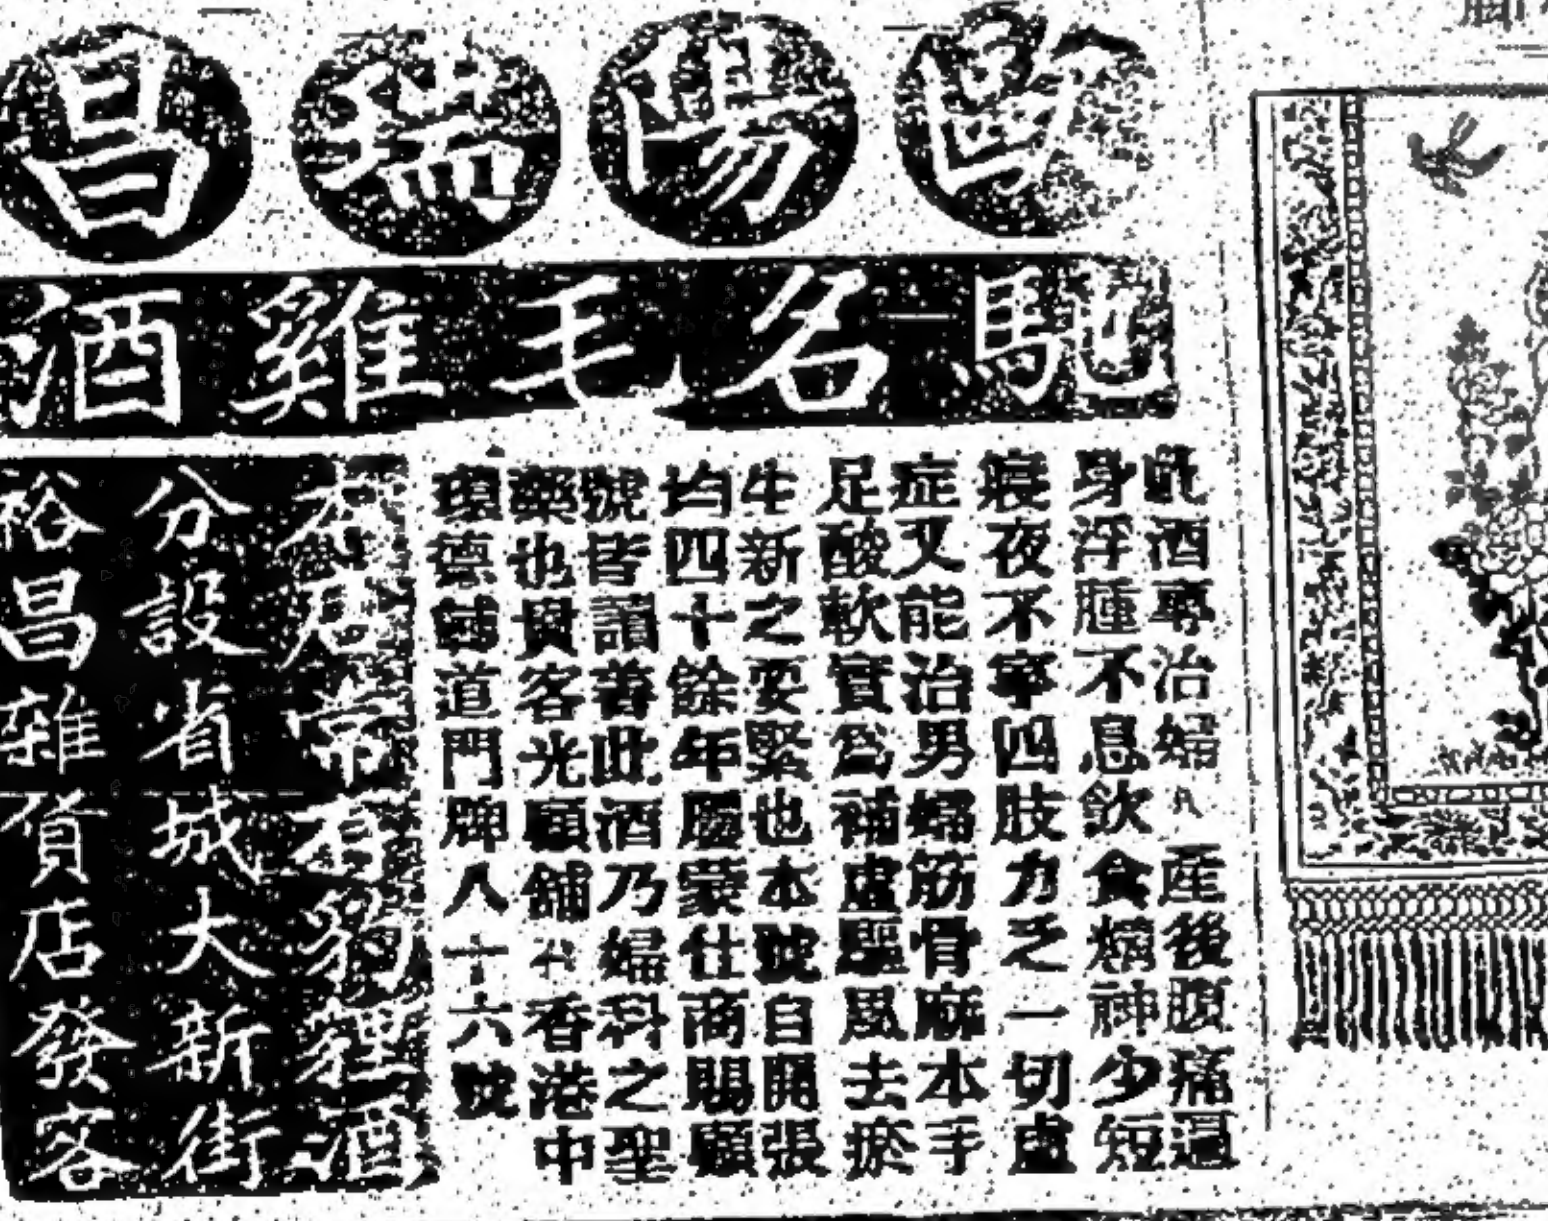 歐陽瑞昌
馳名毛雞酒
此酒專治婦人產後腹痛遍
身浮腫不息飲食煩神少短
寢夜不寧四肢力乏一切虛
症又能治男婦筋骨麻木手
足酸軟實為補虛驅風去瘀
生新之要緊也本號自開張
均四十餘年屢蒙仕商賜顧
號皆讚善此酒乃婦科之聖
藥也貴客光顧舖在香港中
環德輔道門牌八十六號
本店常有豹狸酒
分設省城大新街
裕昌雜貨店發客